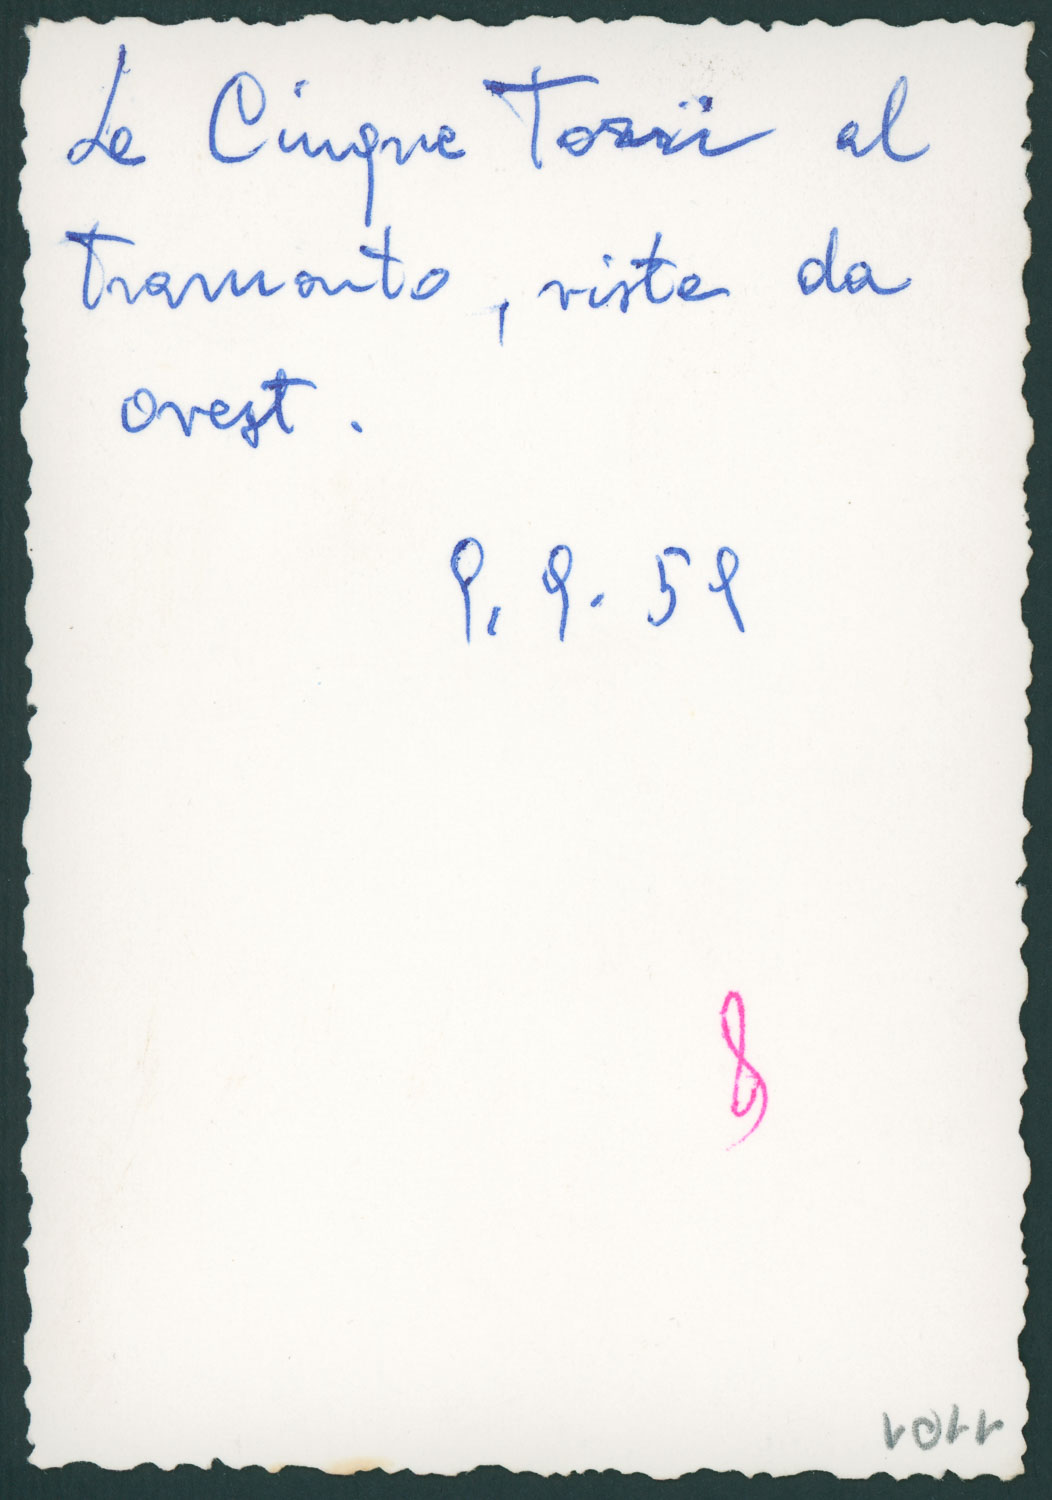 Le Cinque Torri al
tramonto, viste da
ovest.
9. 9. 59
8
1101